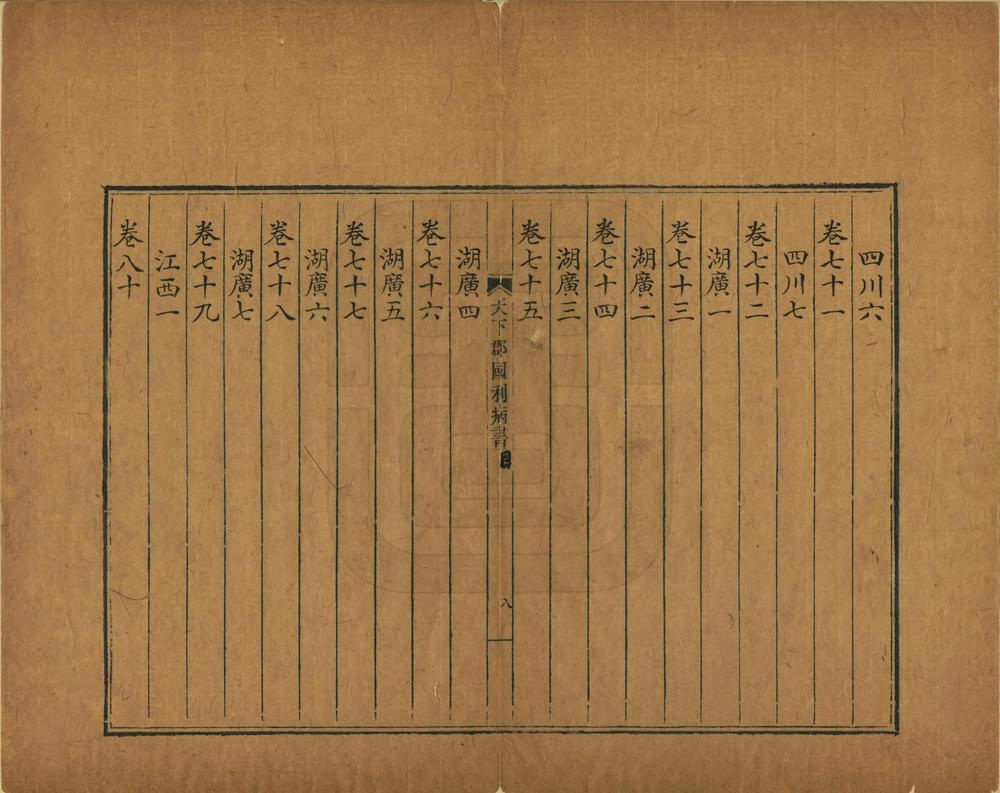 四川六
卷七十一
四川七
卷七十二
湖廣一
卷七十三
湖廣二
卷七十四
湖廣三
卷七十五
天下郡國利病書目
八
湖廣四
卷七十六
湖廣五
卷七十七
湖廣六
卷七十八
湖廣七
卷七十九
江西一
卷八十